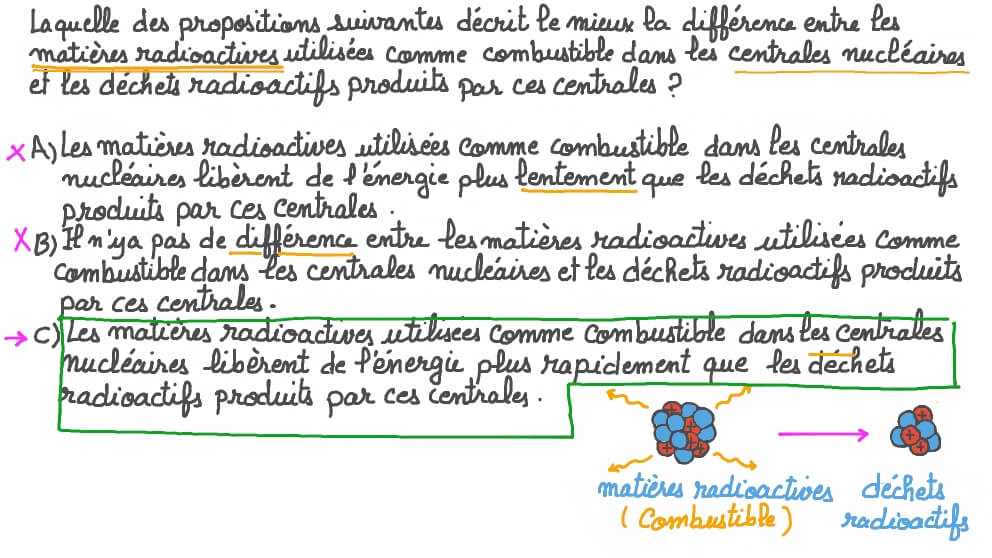 Laquelle des propositions suivantes décrit le mieux la différence entre les
matières radioactives utilisées comme combustible dans les centrales nucléaires
et les déchets radioactifs produits par ces centrales ?
A) Les matières radioactives utilisées comme combustible dans les centrales
nucléaires libèrent de l'énergie plus lentement que les déchets radioactifs
produits par ces centrales.
B) Il n'ya pas de différence entre les matières radioactives utilisées comme
combustible dans les centrales nucléaires et les déchets radioactifs produits
par ces centrales.
C) Les matières radioactives utilisees comme combustible dans les centrales
nucléaires libèrent de l'énergie plus rapidement que les déchets
radioactifs produits par ces centrales.
matières radioactives déchets
(combustible) radioactifs